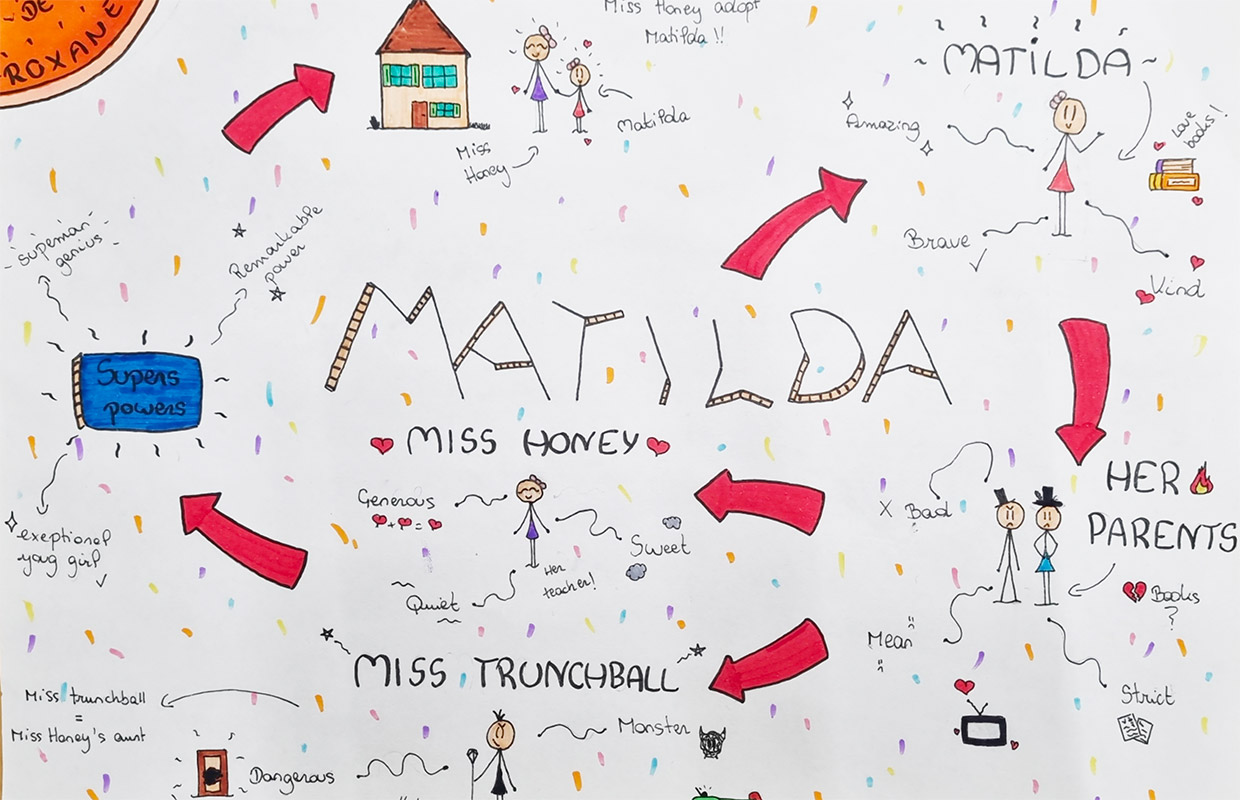 DE
ROXANE
Miss Honey adopt
Matilda !!
Matilda
Miss
Honey
~ MATiLDA ~
Amazing
Love
books !
Brave
Kind
Supeman
genius
Remarkable
power
Supers
powers
exeptional
yong girl
MATILDA
MISS HONEY
Generous
+ =
Sweet
Her
teacher!
Quiet
HER
PARENTS
X Bad
Books
?
Mean
Strict
MISS TRUNCHBALL
Miss trunchball
=
Miss Honey's aunt
Monster
Dangerous